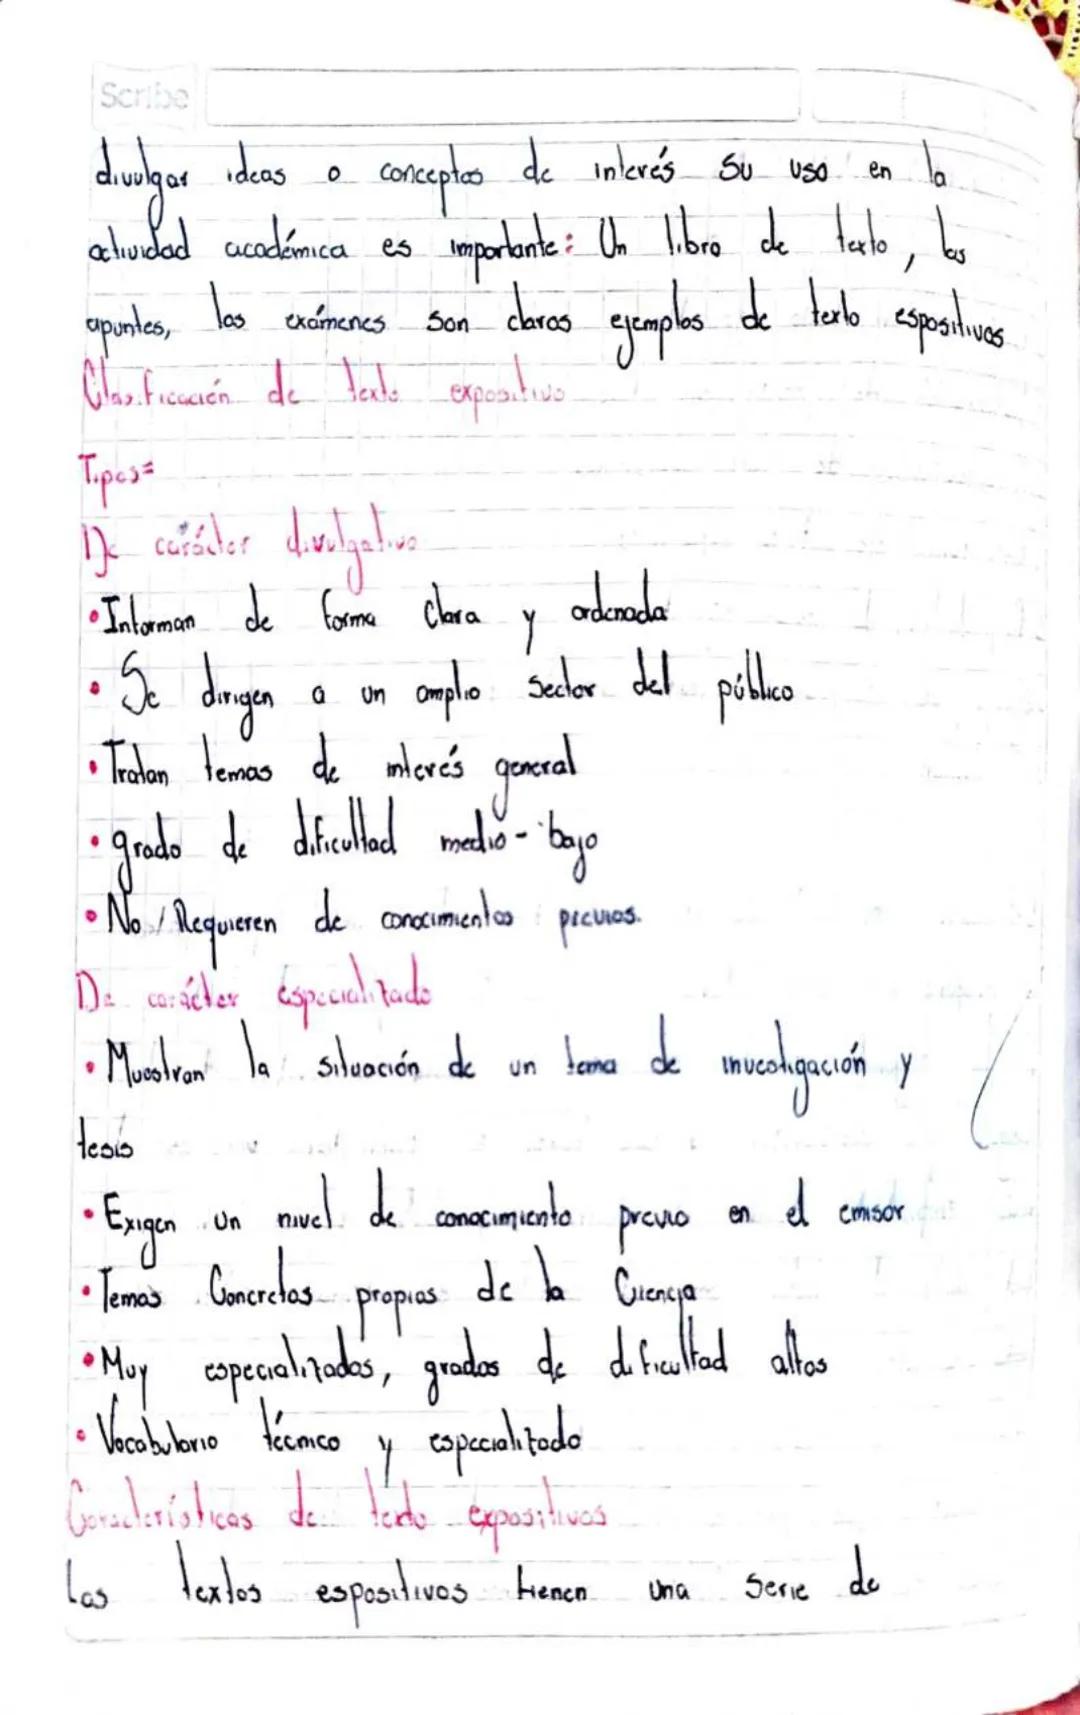 Scribe
divulgar ideas o conceptos de interés su uso en la
actividad académica es importante: Un libro de texto, los
apuntes, los exámenes son claros ejemplos de texto espositivos
Clasificación de texto expositivo
Tipos=
De carácter divulgativo
• Informan de forma clara y ordenada
• Se dirigen a un amplio sector del público
• Tratan temas de interés general
• grado de dificultad medio - bajo
• No / Requieren de conocimientos previos.
De carácter especializado
• Muestran la situación de un tema de investigación y
tesis
• Exigen un nivel de conocimiento previo en el emisor
• Temas Concretos propios de la Ciencia
• Muy especializados, grados de dificultad altos
• Vocabulario técnico y especializado
Características de texto expositivos
Los textos espositivos tienen una serie de